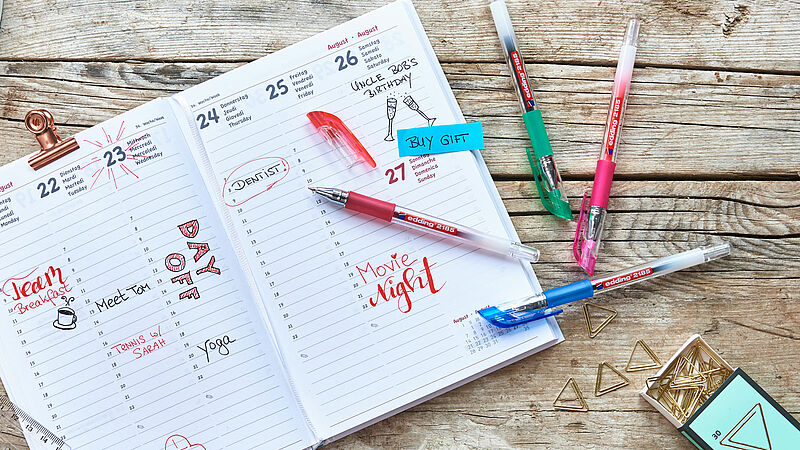 August
22
Dienstag
Mardi
Martedì
Tuesday
23
Mittwoch
Mercredi
Mercoledì
Wednesday
Team
Breakfast
Meet Tom
TENNIS W/
SARAH
DAY
OFF
yoga
24
Donnerstag
Jeudi
Giovedì
Thursday
DENTIST
25
Freitag
Vendredi
Venerdì
Friday
August · August
26
Samstag
Samedi
Sabato
Saturday
UNCLE BOB'S
BIRTHDAY
BUY GIFT
27
Sonntag
Dimanche
Domenica
Sunday
Movie
Night
August
edding 2185
edding 2185
edding 2185
edding 2185
30